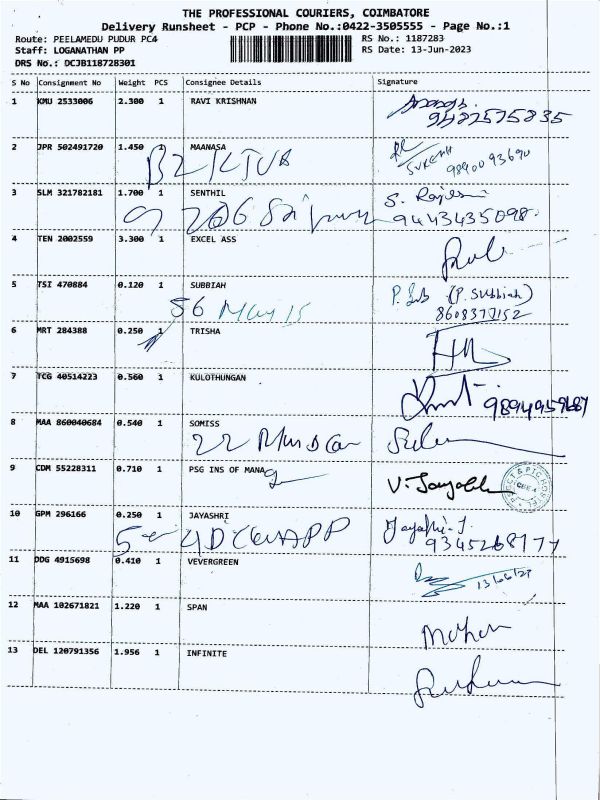 THE PROFESSIONAL COURIERS, COIMBATORE
Delivery Runsheet - PCP - Phone No.:0422-3505555 - Page No.:1
Route: PEELAMEDU PUDUR PC4 RS No.: 1187283
Staff: LOGANATHAN PP RS Date: 13-Jun-2023
DRS No.: DCJB118728301
S No Consignment No Weight PCS Consignee Details Signature
1 KMU 2533006 2.300 1 RAVI KRISHNAN
2 JPR 502491720 1.450 1 MAANASA
SUKESH 9890093690
3 SLM 321782181 1.700 1 SENTHIL
9443435098.
4 TEN 2002559 3.300 1 EXCEL ASS
5 TSI 470884 0.120 1 SUBBIAH
56 May 15 (P. Subbiah)
8608377152
6 MRT 284388 0.250 1 TRISHA
7 TCG 40514223 0.560 1 KULOTHUNGAN
8 MAA 860040684 0.540 1 SOMISS
22
9 CDM 55228311 0.710 1 PSG INS OF MANAG
10 GPM 296166 0.250 1 JAYASHRI
Jayashri.J.
9345268177
11 DDG 4915698 0.410 1 VEVERGREEN
13/06/23
12 MAA 102671821 1.220 1 SPAN
Mohan
13 DEL 120791356 1.956 1 INFINITE